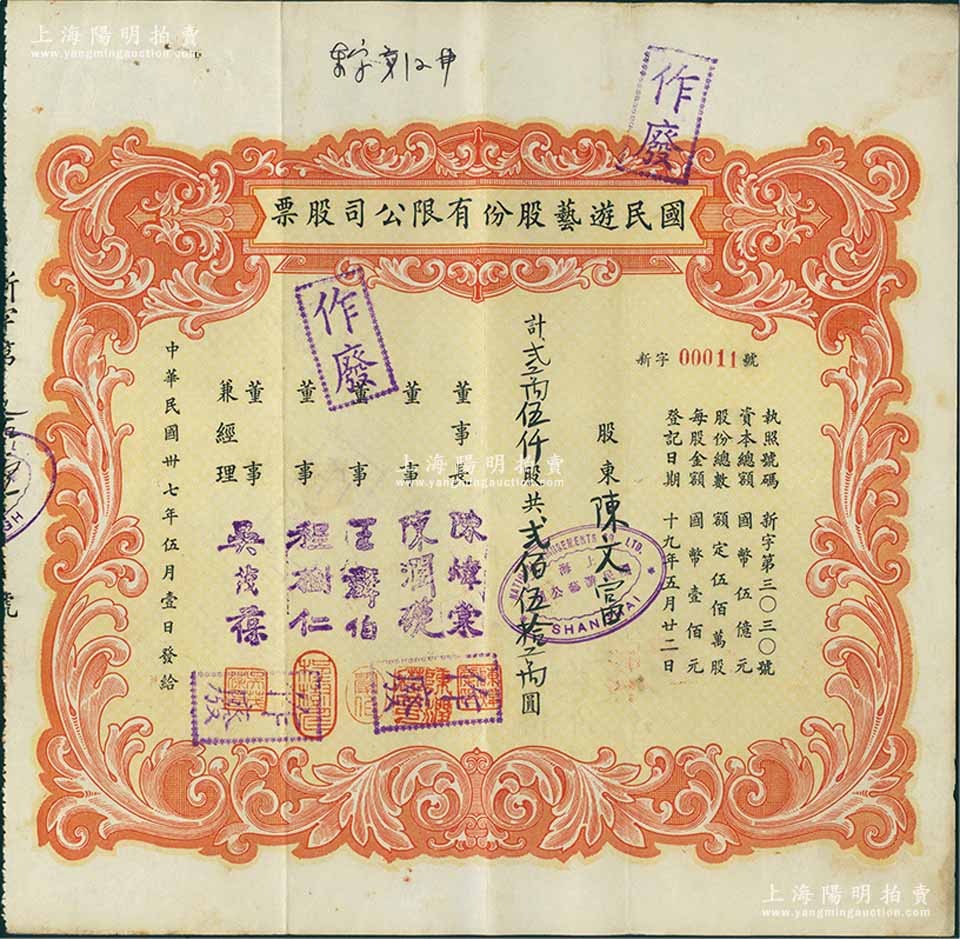 上海陽明拍賣
www.yangmingauction.com
作廢
國民遊藝股份有限公司股票
新字 00011 號
執照號碼 新字第三〇三〇號
資本總額 國幣伍億元
股份總數 額定伍佰萬股
每股金額 國幣壹佰元
登記日期 十九年五月廿二日
股東 陳文
計 伍仟股共 貳佰伍拾 圓
作廢
董事長 陳 棠
董事 陳潤
董事 王 伯
董事 程樹仁
董事兼經理 吳茂葆
中華民國卅七年伍月壹日發給
NATIONAL AMUSEMENTS LTD.
SHANGHAI
作廢
作廢
上海陽明拍賣
www.yangmingauction.com
上海陽明拍賣
www.yangmingauction.com